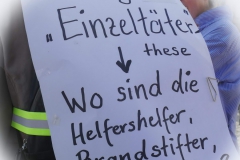 „Einzeltäter"
these
↓
Wo sind die
Helfershelfer,
Brandstifter,